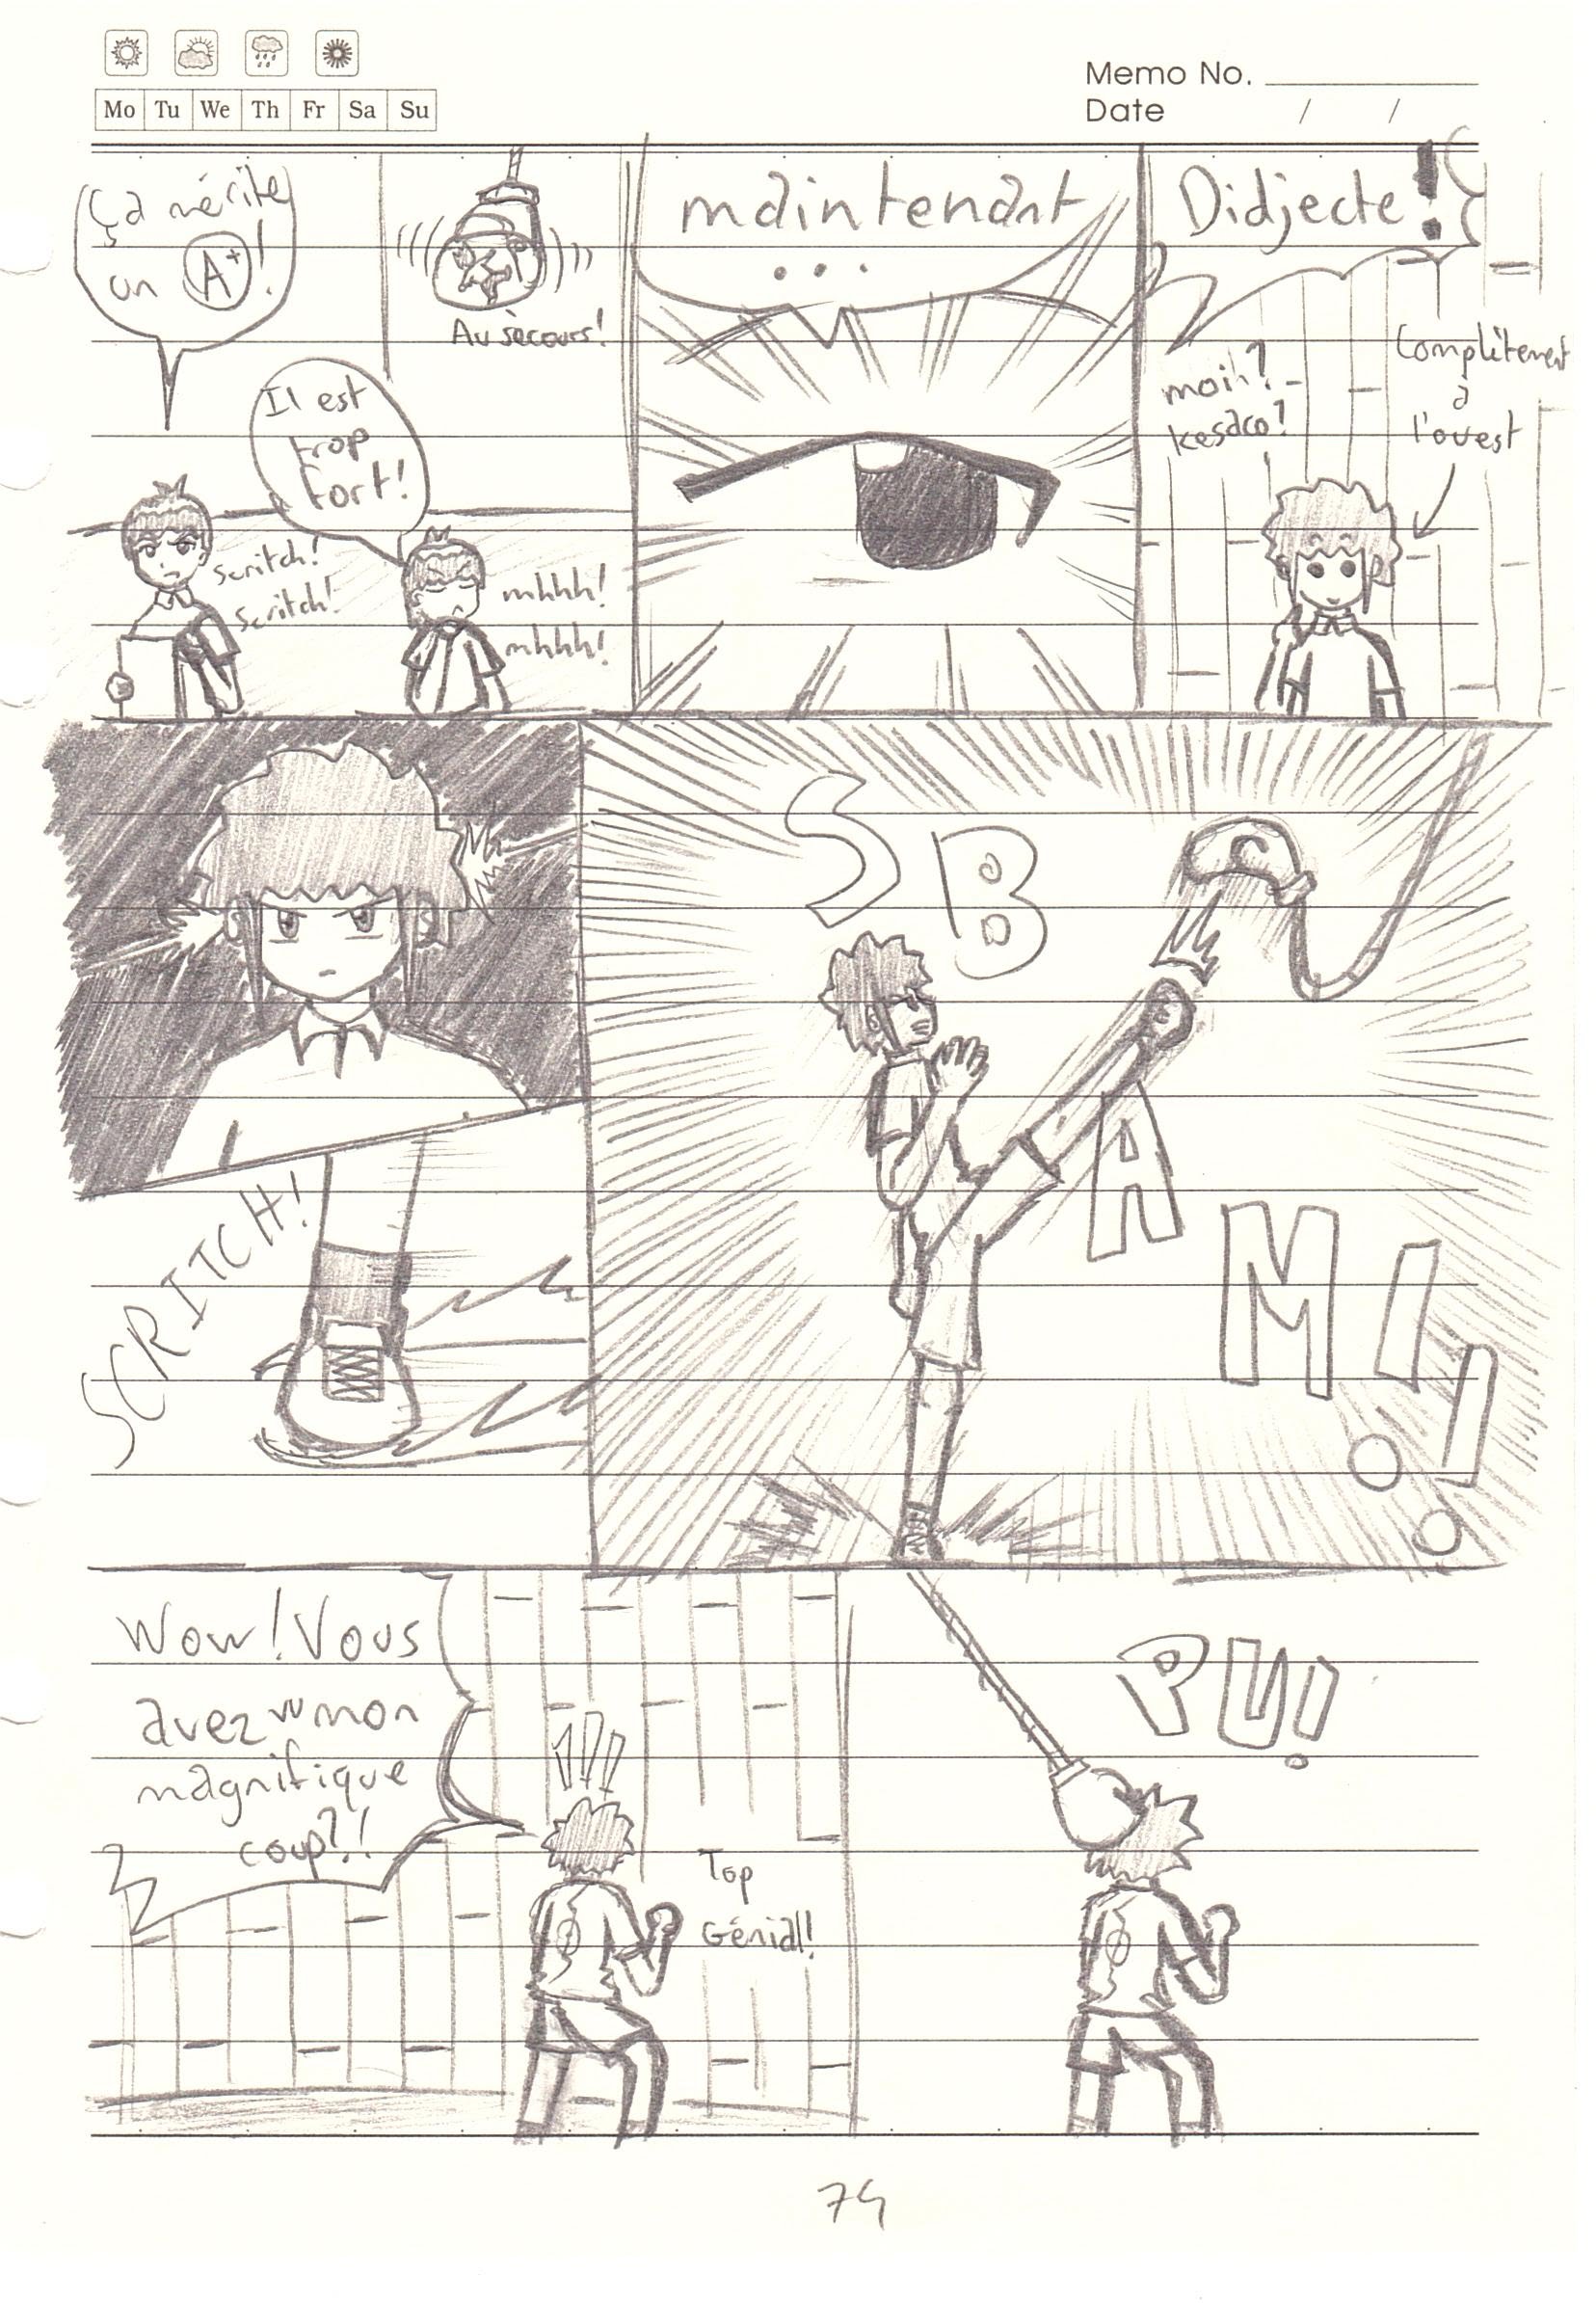 Mo Tu We Th Fr Sa Su
Memo No.
Date / /
Ça mérite
un A+ !
Au secours!
Il est
trop
fort!
scritch!
scritch!
mhhh!
mhhh!
maintenant
...
Didjecte!
moih?
kesaco?
Complètement
à
l'ouest
SCRITCH!
SBAM!!!
Wow! Vous
avez vu mon
magnifique
coup?!
!!!
Top
Génial!
PU!
74